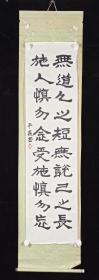 無道人之短無說己之長
施人慎勿念受施慎勿忘